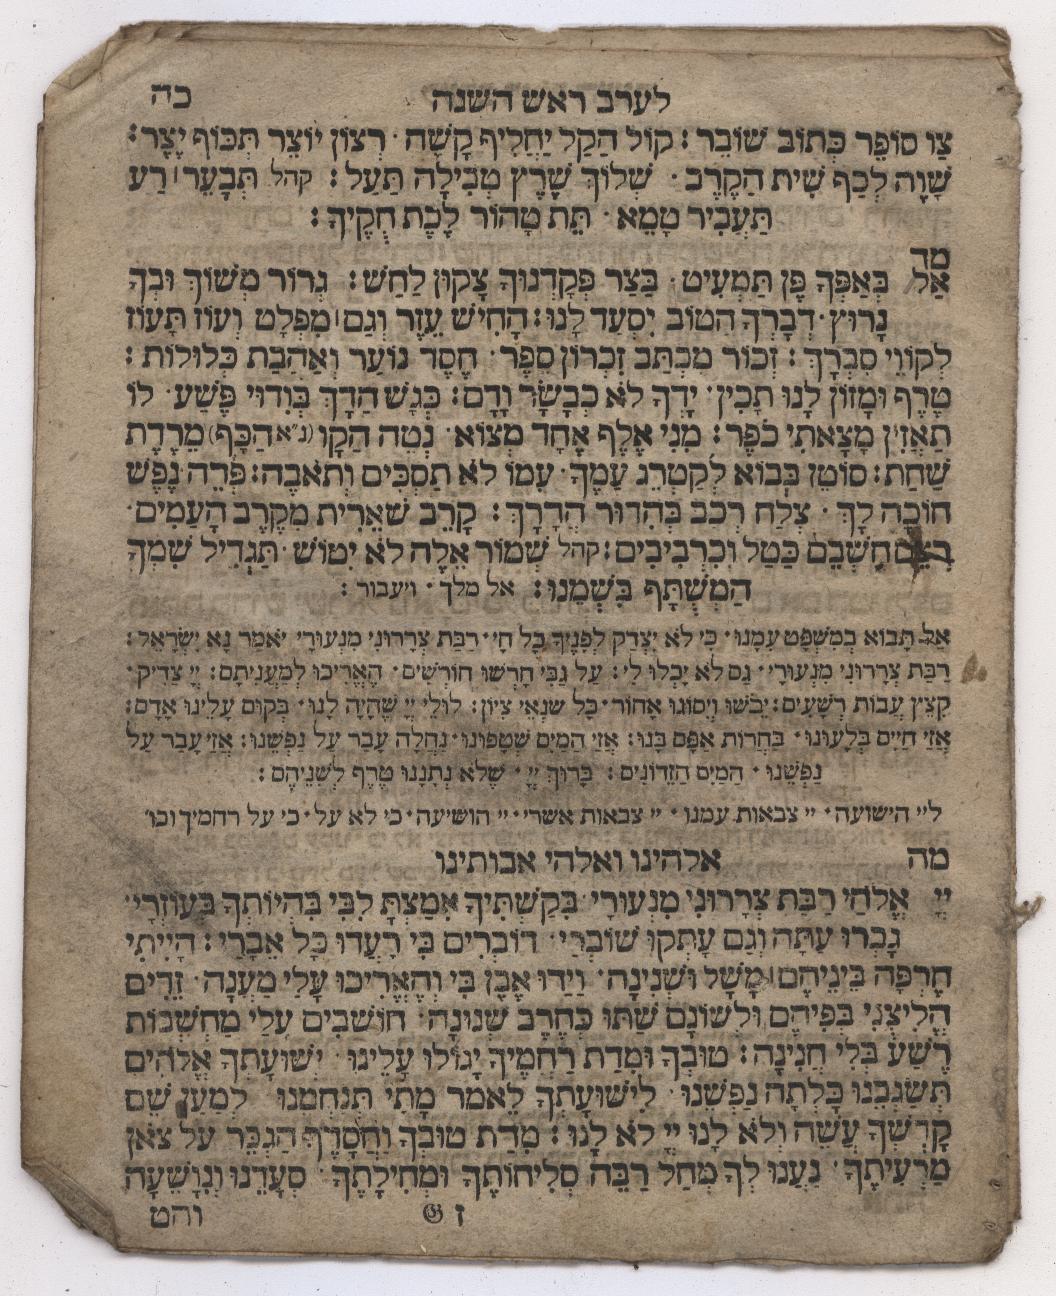 לערב ראש השנה כה
צַו סוֹפֵר כְּתוֹב שׁוֹבֵר: קוֹל הַקַל יַחֲלִיף קָשֶׁה· רְצוֹן יוֹצֵר תִּכּוֹף יֵצֶר:
שָׁוֶה לְכַף שִׁית הַקֶרֶב· שְׁלוֹךְ שֶׁרֶץ טְבִילָה תַּעַל: קהל תְּבָעֵר׀רַע
תַּעֲבִיר טָמֵא· תֵּת טָהוֹר לָכֶת חֻקֶיךָ:
מד
אַל בְּאַפְּךָ פֶּן תַּמְעִיט· בַּצַר פְּקָדְנוּךָ צָקוּן לַחַשׁ: גְרוֹר מְשׁוֹךְ וּבְךָ
נָרוּץ· דְּבָרְךָ הַטוֹב יִסְעַד לָנוּ: הָחִישׁ עֵזֶר וְגַם׀מִפְלָט וְעוֹז תָּעוֹז
לְקוֹוֵי סִבְרָךְ: זְכוֹר מִכְתַּב זִכְרוֹן סֵפֶר· חֶסֶד נוֹעַר וְאַהֲבַת כְּלוּלוֹת:
טֶרֶף וּמָזוֹן לָנוּ תָכִין· יָדְךָ לֹא כְבָשָׂר וָדָם: כְּגָשׁ הַדָּךְ בְּוִדּוּי פֶּשַׁע· לוֹ
תַאֲזִין מָצָאתִי כֹפֶר: מִנִּי אֶלֶף אֶחָד מְצוֹא· נְטֵה הַקָו(נ״א הַכָּף)מֵרֶדֶת
שַׁחַת: סוֹטֵן בְּבוֹא לְקַטְרֵג עַמֶּךָ· עִמּוֹ לֹא תַסְכִּים וְתֹאבֶה: פְּדֵה נֶפֶשׁ
חוֹכָה לָךְ· צְלַח רְכַב בְּהִדּוּר הֲדָרָךְ: קָרֵב שְׁאֵרִית מִקֶרֶב הָעַמִים·
חָשְׁבֵם כַּטַל וְכִרְבִיבִים: קהל שְׁמוֹר אֵלֶה לֹא יִטּוֹשׁ· תַּגְדִּיל שִׁמְךָ
הַמְשֻׁתָּף בִּשְׁמֵנוּ: אל מלך· ויעבור:
אַל תָּבוֹא בְמִשְׁפָּט עִמָּנוּ· כִּי לֹא יִצְדַּק לְפָנֶיךָ כָל חָי· רַבַּת צְרָרוּנִי מִנְּעוּרַי יֹאמַר נָא יִשְׂרָאֵל:
רַבַּת צְרָרוּנִי מִנְּעוּרָי· גַּם לֹא יָכְלוּ לִי: עַל גַּבִּי חָרְשׁוּ חוֹרְשִׁים· הֶאֱרִיכוּ לְמַעֲנִיתָם: יְיָ צַדִּיק·
קִצֵּץ עֲבוֹת רְשָׁעִים: יֵבֹשׁוּ וְיִסּוֹגוּ אָחוֹר· כָּל שׂנְאֵי צִיּוֹן: לוּלֵי יְיָ שֶׁהָיָה לָנוּ· בְּקוּם עָלֵינוּ אָדָם:
אֲזַי חַיִּים בְּלָעוּנוּ· בַּחֲרוֹת אַפָּם בָּנוּ: אֲזַי הַמַּיִם שְׁטָפוּנוּ· נַחְלָה עָבַר עַל נַפְשֵׁנוּ: אֲזַי עָבַר עַל
נַפְשֵׁנוּ· הַמַּיִם הַזֵּדוֹנִים: בָּרוּךְ יְיָ· שֶׁלֹּא נְתָנָנוּ טֶרֶף לְשִׁנֵּיהֶם:
ליי הישועה· יי צבאות עמנו· יי צבאות אשרי· יי הושיעה· כי לא על· כי על רחמיך וכו׳
מה אלהינו ואלהי אבותינו
יְיָ אֱלֹהַי רַבַּת צְרָרוּנִי מִנְּעוּרָי· בְּקַשְׁתִּיךָ אִמַּצְתָּ לִבִּי בִּהְיוֹתְךָ בְּעוֹזְרָי·
גָּבְרוּ עַתָּה וְגַם עָתְקוּ שׁוֹבְרַי· דּוֹבְרִים בִּי רָעֲדוּ כָּל אֵבָרַי: הָיִיתִי
חֶרְפָּה בֵּינֵיהֶם׀מָשָׁל וּשְׁנִינָה· וַיַּדּוּ אֶבֶן בִּי וְהֶאֱרִיכוּ עָלַי מַעֲנָה· זֵדִים
הֱלִיצֻנִי בְּפִיהֶם וּלְשׁוֹנָם שַׁתּוּ כְּחֶרֶב שְׁנוּנָה· חוֹשְׁבִים עָלַי מַחְשְׁבוֹת
רֶשַׁע בְּלִי חֲנִינָה: טוּבְךָ וּמִדַּת רַחֲמֶיךָ יָגוֹלּוּ עָלֵינוּ· יְשׁוּעָתְךָ אֱלֹהִים
תְּשַׂגְּבֵנוּ כָּלְתָה נַפְשֵׁנוּ· לִישׁוּעָתְךָ לֵאמֹר מָתַי תְּנַחֲמֵנוּ· לְמַעַן שֵׁם
קָדְשְׁךָ עֲשֵׂה וְלֹא לָנוּ יְיָ לֹא לָנוּ: מִדַּת טוּבְךָ וַחֲסָדֶיךָ הַגְבֵּר עַל צֹאן
מַרְעִיתֶךָ· נַעֲנוּ לְךָ מְחַל רַבֵּה סְלִיחוֹתֶךָ וּמְחִילָתֶךָ· סְעָדֵנוּ וְנִוָּשֵׁעָה
ז והט